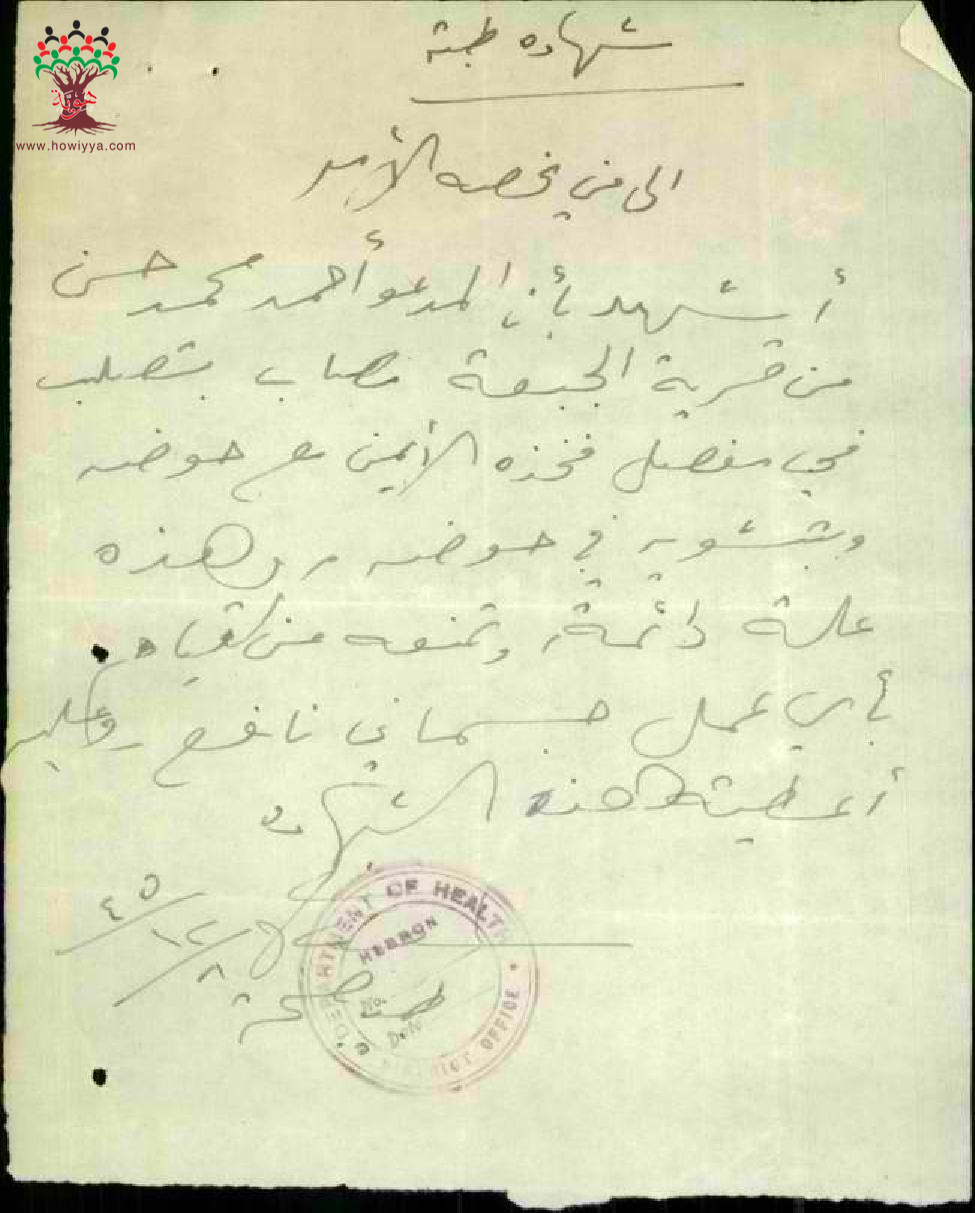 هوية
www.howiyya.com
شهاده طبية
الى من يخصه الأمر
أشهد بأن المدعو أحمد محمد حسن
من قرية الجبعة مصاب بتصلب
في مفصل فخذه الأيمن مع حوضه
وبتشويه في حوضه وهذه
علة دائمة وتمنعه من القيام
بأي عمل جسماني نافع وعليه
أعطيته هذه الشهاده
DEPARTMENT OF HEALTH
HEBRON
No.
Date
DISTRICT OFFICE
طبيب صحة